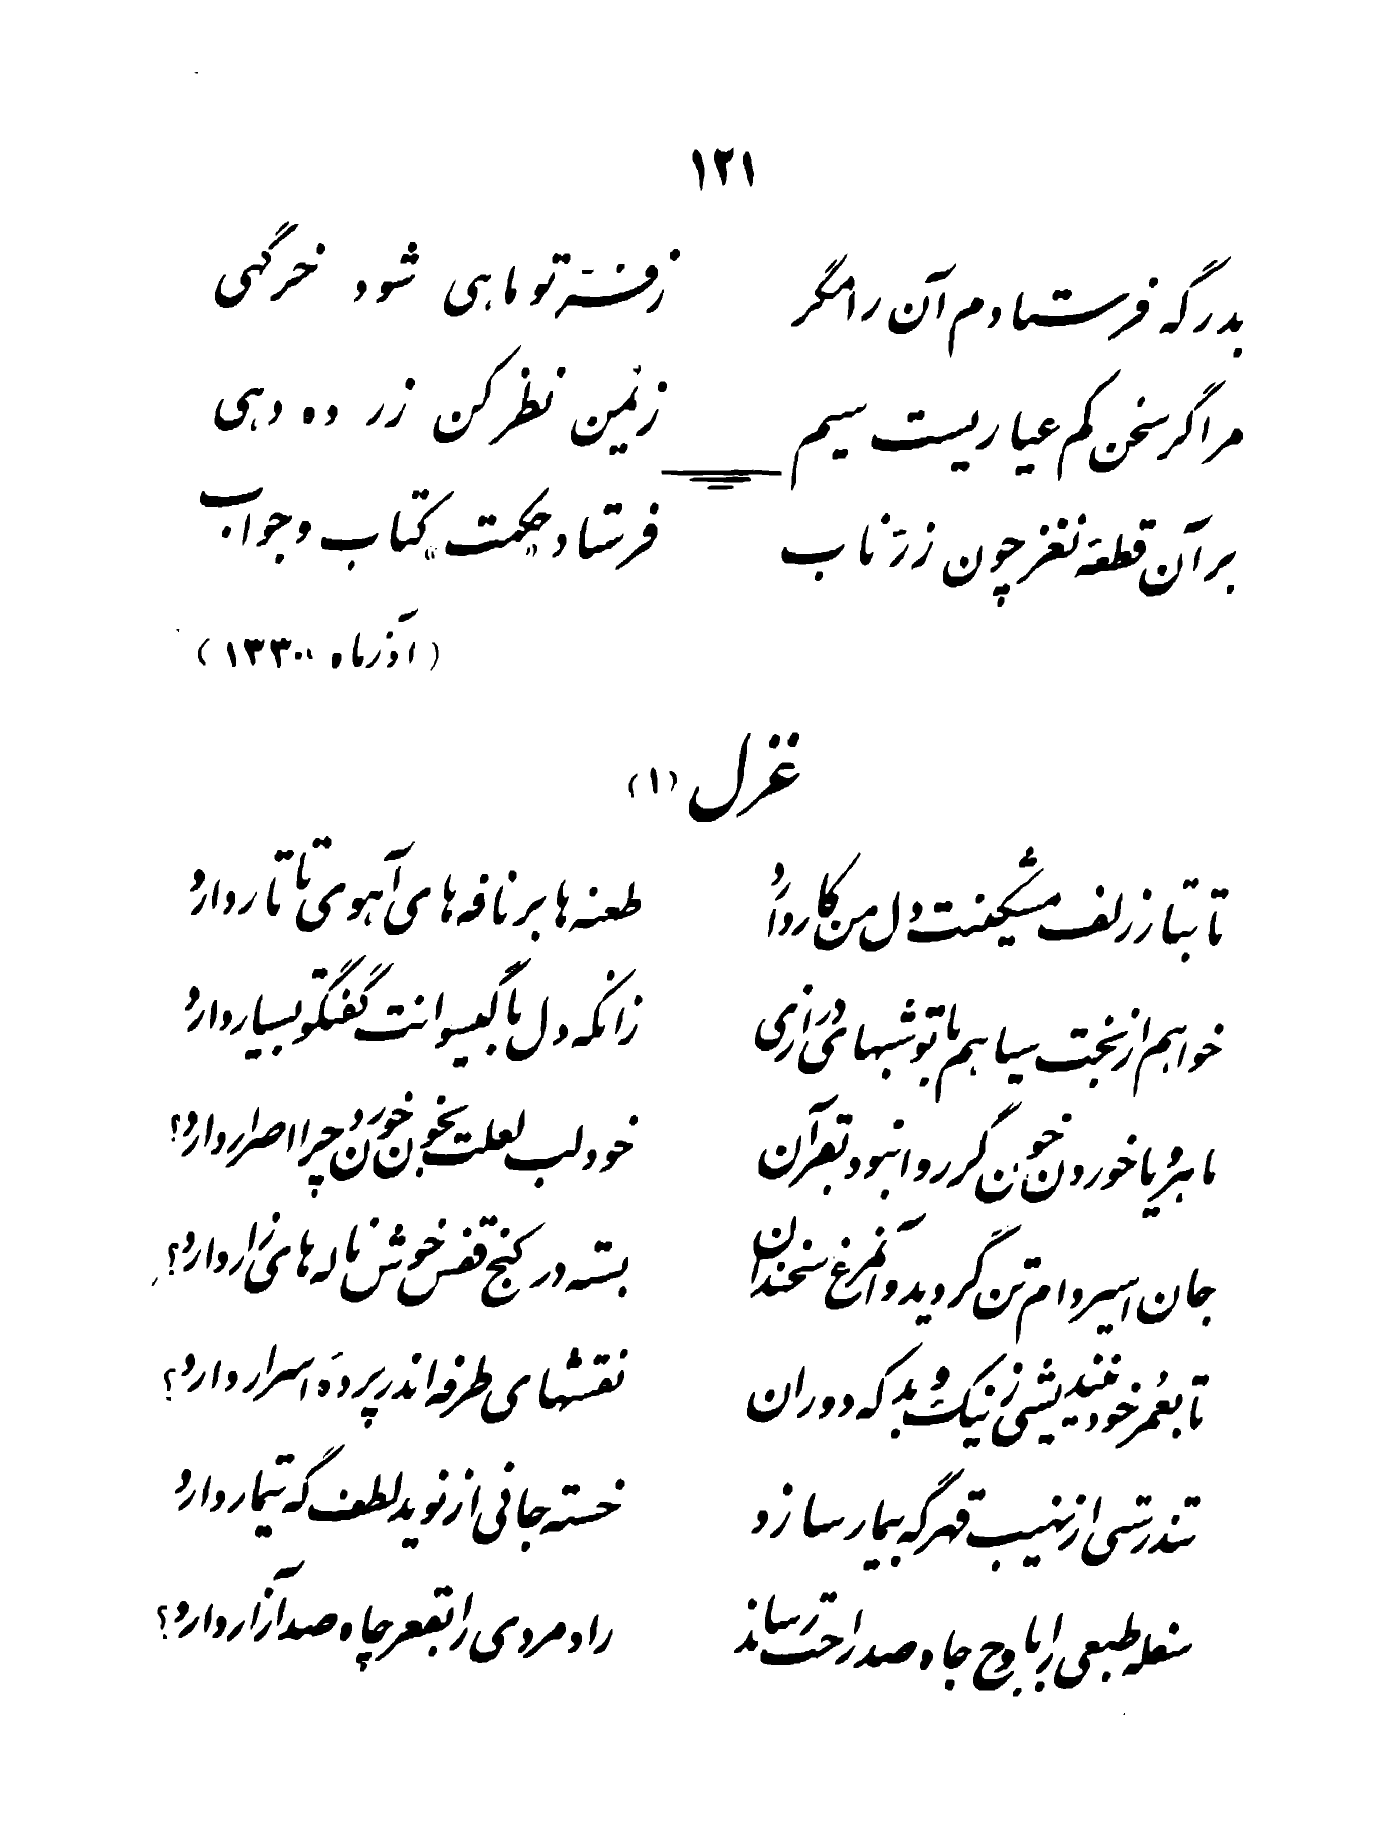 ۱۲۱
بدرگه فرستادم آن را مگر
ز فرّ تو ماهی شود خرگهی
مرا گر سخن کم عیاریست سیم
ز یُمن نظر کن زر ده دهی
بر آن قطعهٔ نغز چون زرّ ناب
فرستاد "حکمت" کتاب و جواب
(آذرماه ۱۳۳۰)
غزل (۱)
تا بتار زلف مشکینت دل من کار دارد
طعنه ها بر نافه های آهوی تاتار دارد
خواهم از بخت سیاهم با تو شبهای درازی
زانکه دل با گیسوانت گفتگو بسیار دارد
ماهرویا خوردن خون گر روا نبود بقرآن
خود لب لعلت بخون خوردن چرا اصرار دارد؟
جان اسیر دام تن گردید و آنمرغ سخندان
بسته در کنج قفس خوش ناله های زار دارد؟
تا بعمر خود نیندیشی ز نیک و بد که دوران
نقشهای طرفه اندر پردهٔ اسرار دارد؟
تندرستی از نهیب قهر گه بیمار سازد
خسته جانی از نوید لطف گه تیمار دارد
سفله طبعی را باوج جاه صد راحت رساند
رادمردی را بقعر چاه صد آزار دارد؟